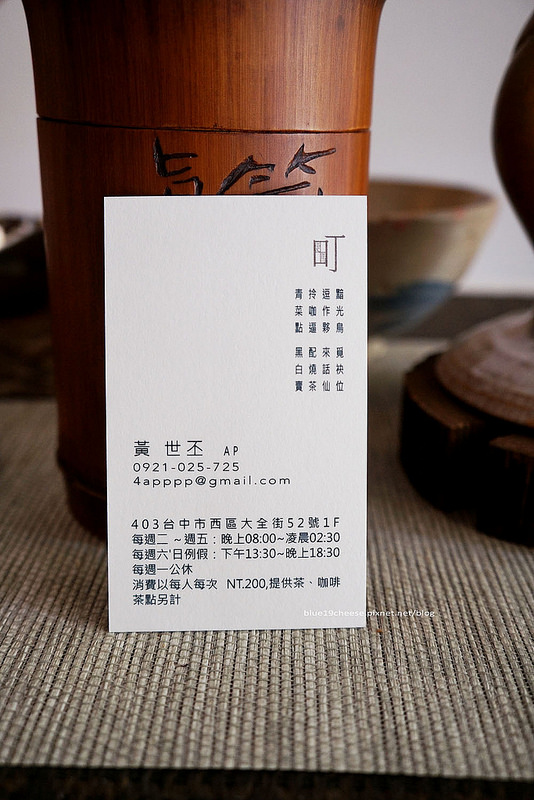 町
黯光鳥 覓袂位
逗作夥 來話仙
拎咖逼 配燒茶
青菜點 黑白賣
黃世丕 AP
0921-025-725
4apppp@gmail.com
403台中市西區大全街52號1F
每週二 ~週五：晚上08:00~凌晨02:30
每週六'日例假：下午13:30~晚上18:30
每週一公休
消費以每人每次 NT.200,提供茶、咖啡
茶點另計
blue19cheese.pixnet.net/blog